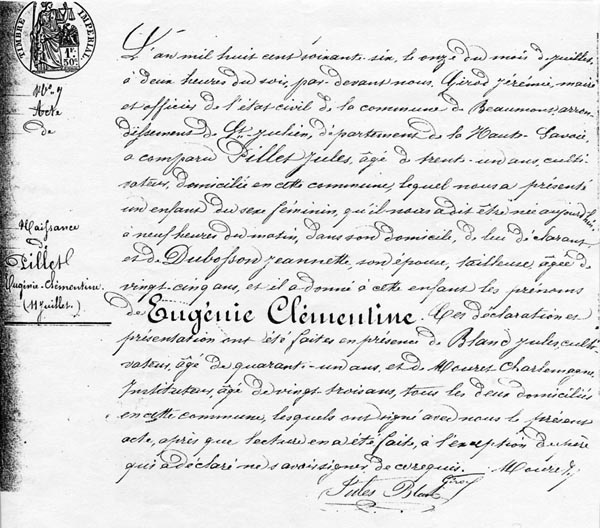 TIMBRE IMPÉRIAL
1 F.
50 C.
N.º 9
Acte
de
Naissance
de
Pillet
Eugénie-Clémentine.
(11 juillet.)
L'an mil huit cent soixante-six, le onze du mois de juillet,
à deux heures du soir, par-devant nous, Girod Jérémie, maire
et officier de l'état civil de la commune de Beaumont, arron-
dissement de St. Julien, département de la Haute-Savoie,
a comparu Pillet Jules, âgé de trente-un ans, culti-
vateur, domicilié en cette commune, lequel nous a présenté
un enfant du sexe féminin, qu'il nous a dit être née aujourd'hui,
à neuf heures du matin, dans son domicile, de lui déclarant
et de Dubosson Jeannette, son épouse, tailleuse, âgée de
vingt-cinq ans, et il a donné à cette enfant les prénoms
de Eugénie Clémentine. Ces déclaration et
présentation ont été faites en présence de Bland Jules, culti-
vateur, âgé de quarante-un ans, et de Mouret Charlemagne,
Instituteur, âgé de vingt-trois ans, tous les deux domiciliés
en cette commune, lesquels ont signé avec nous le présent
acte, après que lecture en a été faite, à l'exception du père
qui a déclaré ne savoir signer de ce requis. Mouret
Jules Bland